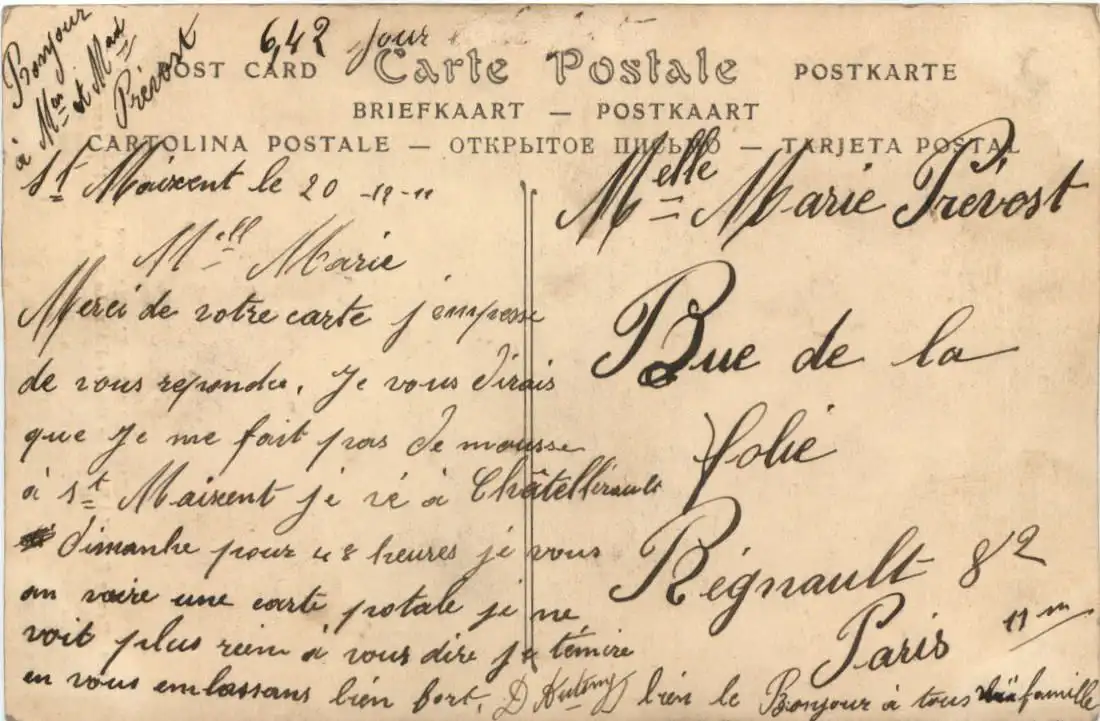 Bonjour
à Mr et Mad
Prévost
642 jour
POST CARD Carte Postale POSTKARTE
BRIEFKAART — POSTKAART
CARTOLINA POSTALE — ОТКРЫТОЕ ПИСЬМО — TARJETA POSTAL
St Maixent le 20 -12-11
Mell Marie
Merci de votre carte j'empresse
de vous repondre. Je vous dirais
que Je me fait pas de mousse
à St Maixent je vé à Châtellerault
dimanhe pour 48 heures je vous
an vaire une carte potale je ne
voit plus rien à vous dire je témire
en vous embassans bien fort. D
bien le Bonjour à tous famille
Melle Marie Prévost
Rue de la
folie
Régnault 82
Paris 11m